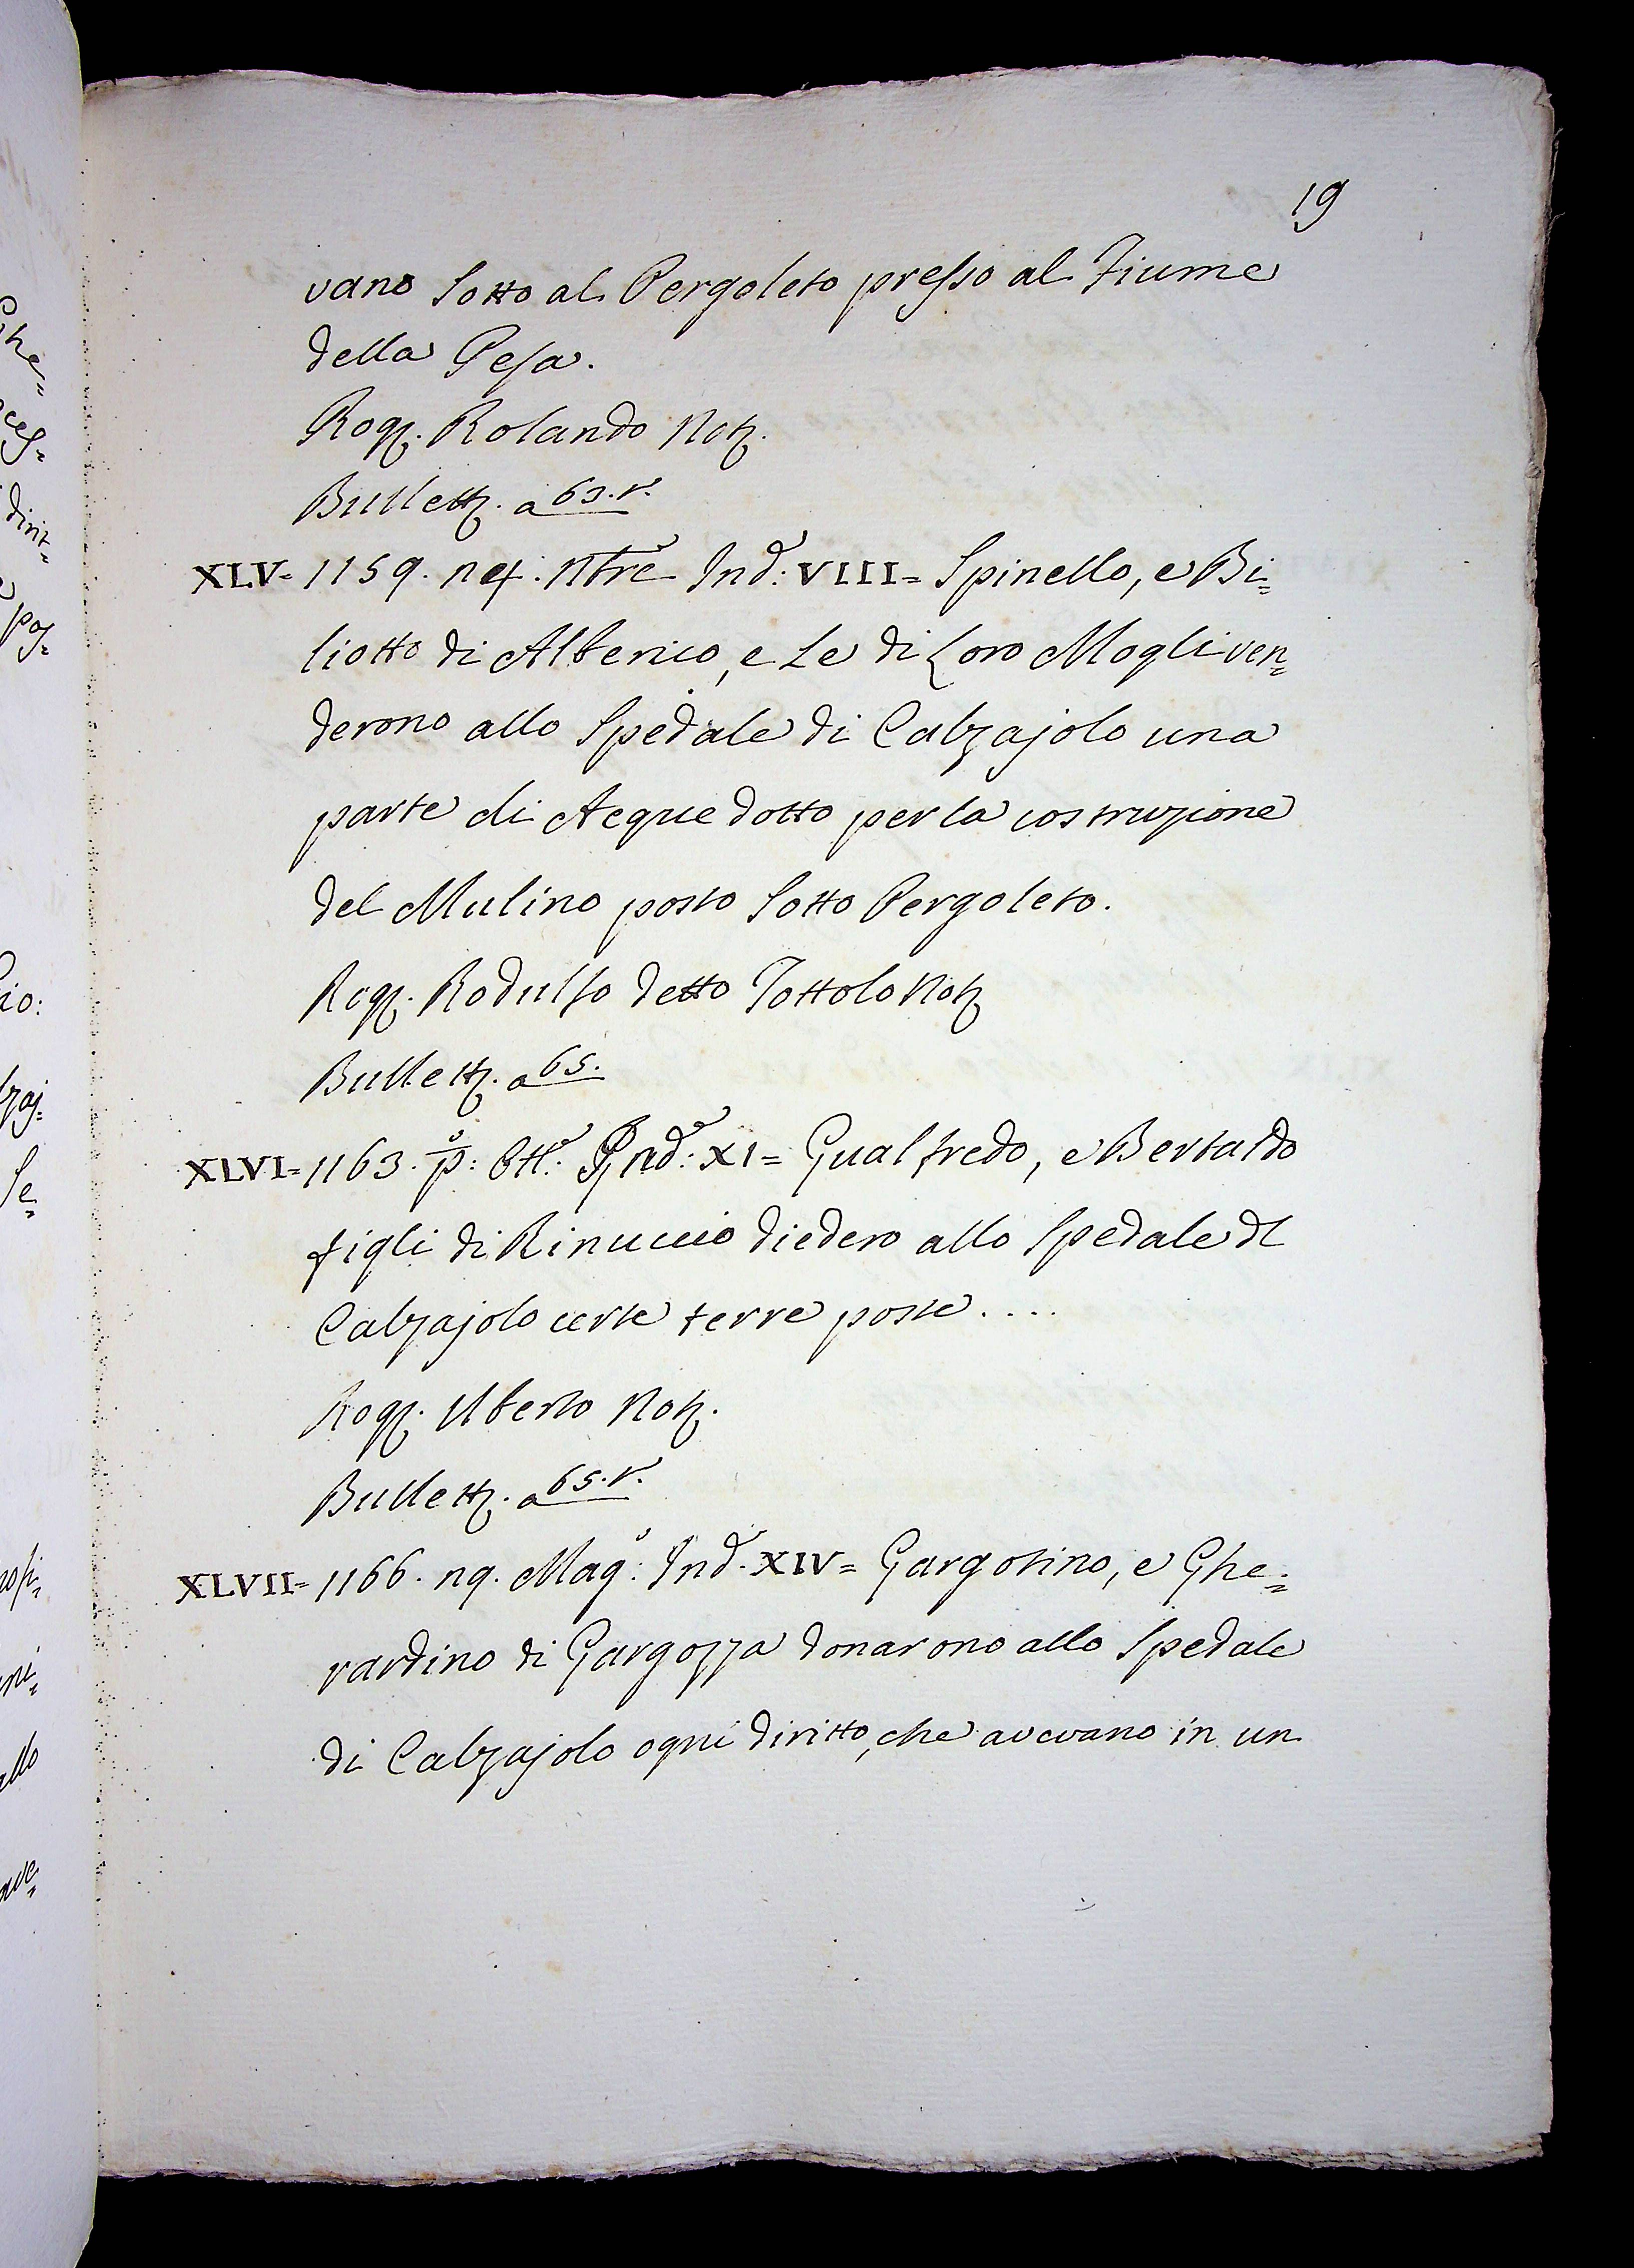 19
vano sotto al Pergoleto presso al Fiume
della Pesa.
Rog. Rolando Not.
Bullett. a 63. v.
XLV= 1159. Nbre Ind: VIII= Spinello, e Bi=
liotto di Alberico, e Le di Loro Mogli ven=
derono allo Spedale di Calzajolo una
parte di Acquedotto per la costruzione
del Mulino posto sotto Pergoleto.
Rog. Rodulfo detto Tottolo Not
Bullett. a 65.
XLVI= 1163. p: Ott: Ind: XI= Gualfredo, e Bertaldo
figli di Rinuccio diedero allo Spedale di
Calzajolo certe terre poste ....
Rog. Uberto Not.
Bullett. a 65. v.
XLVII= 1166. Mag: Ind. XIV= Gargotino, e Ghe=
rardino di Gargozza donarono allo Spedale
di Calzajolo ogni diritto, che avevano in un